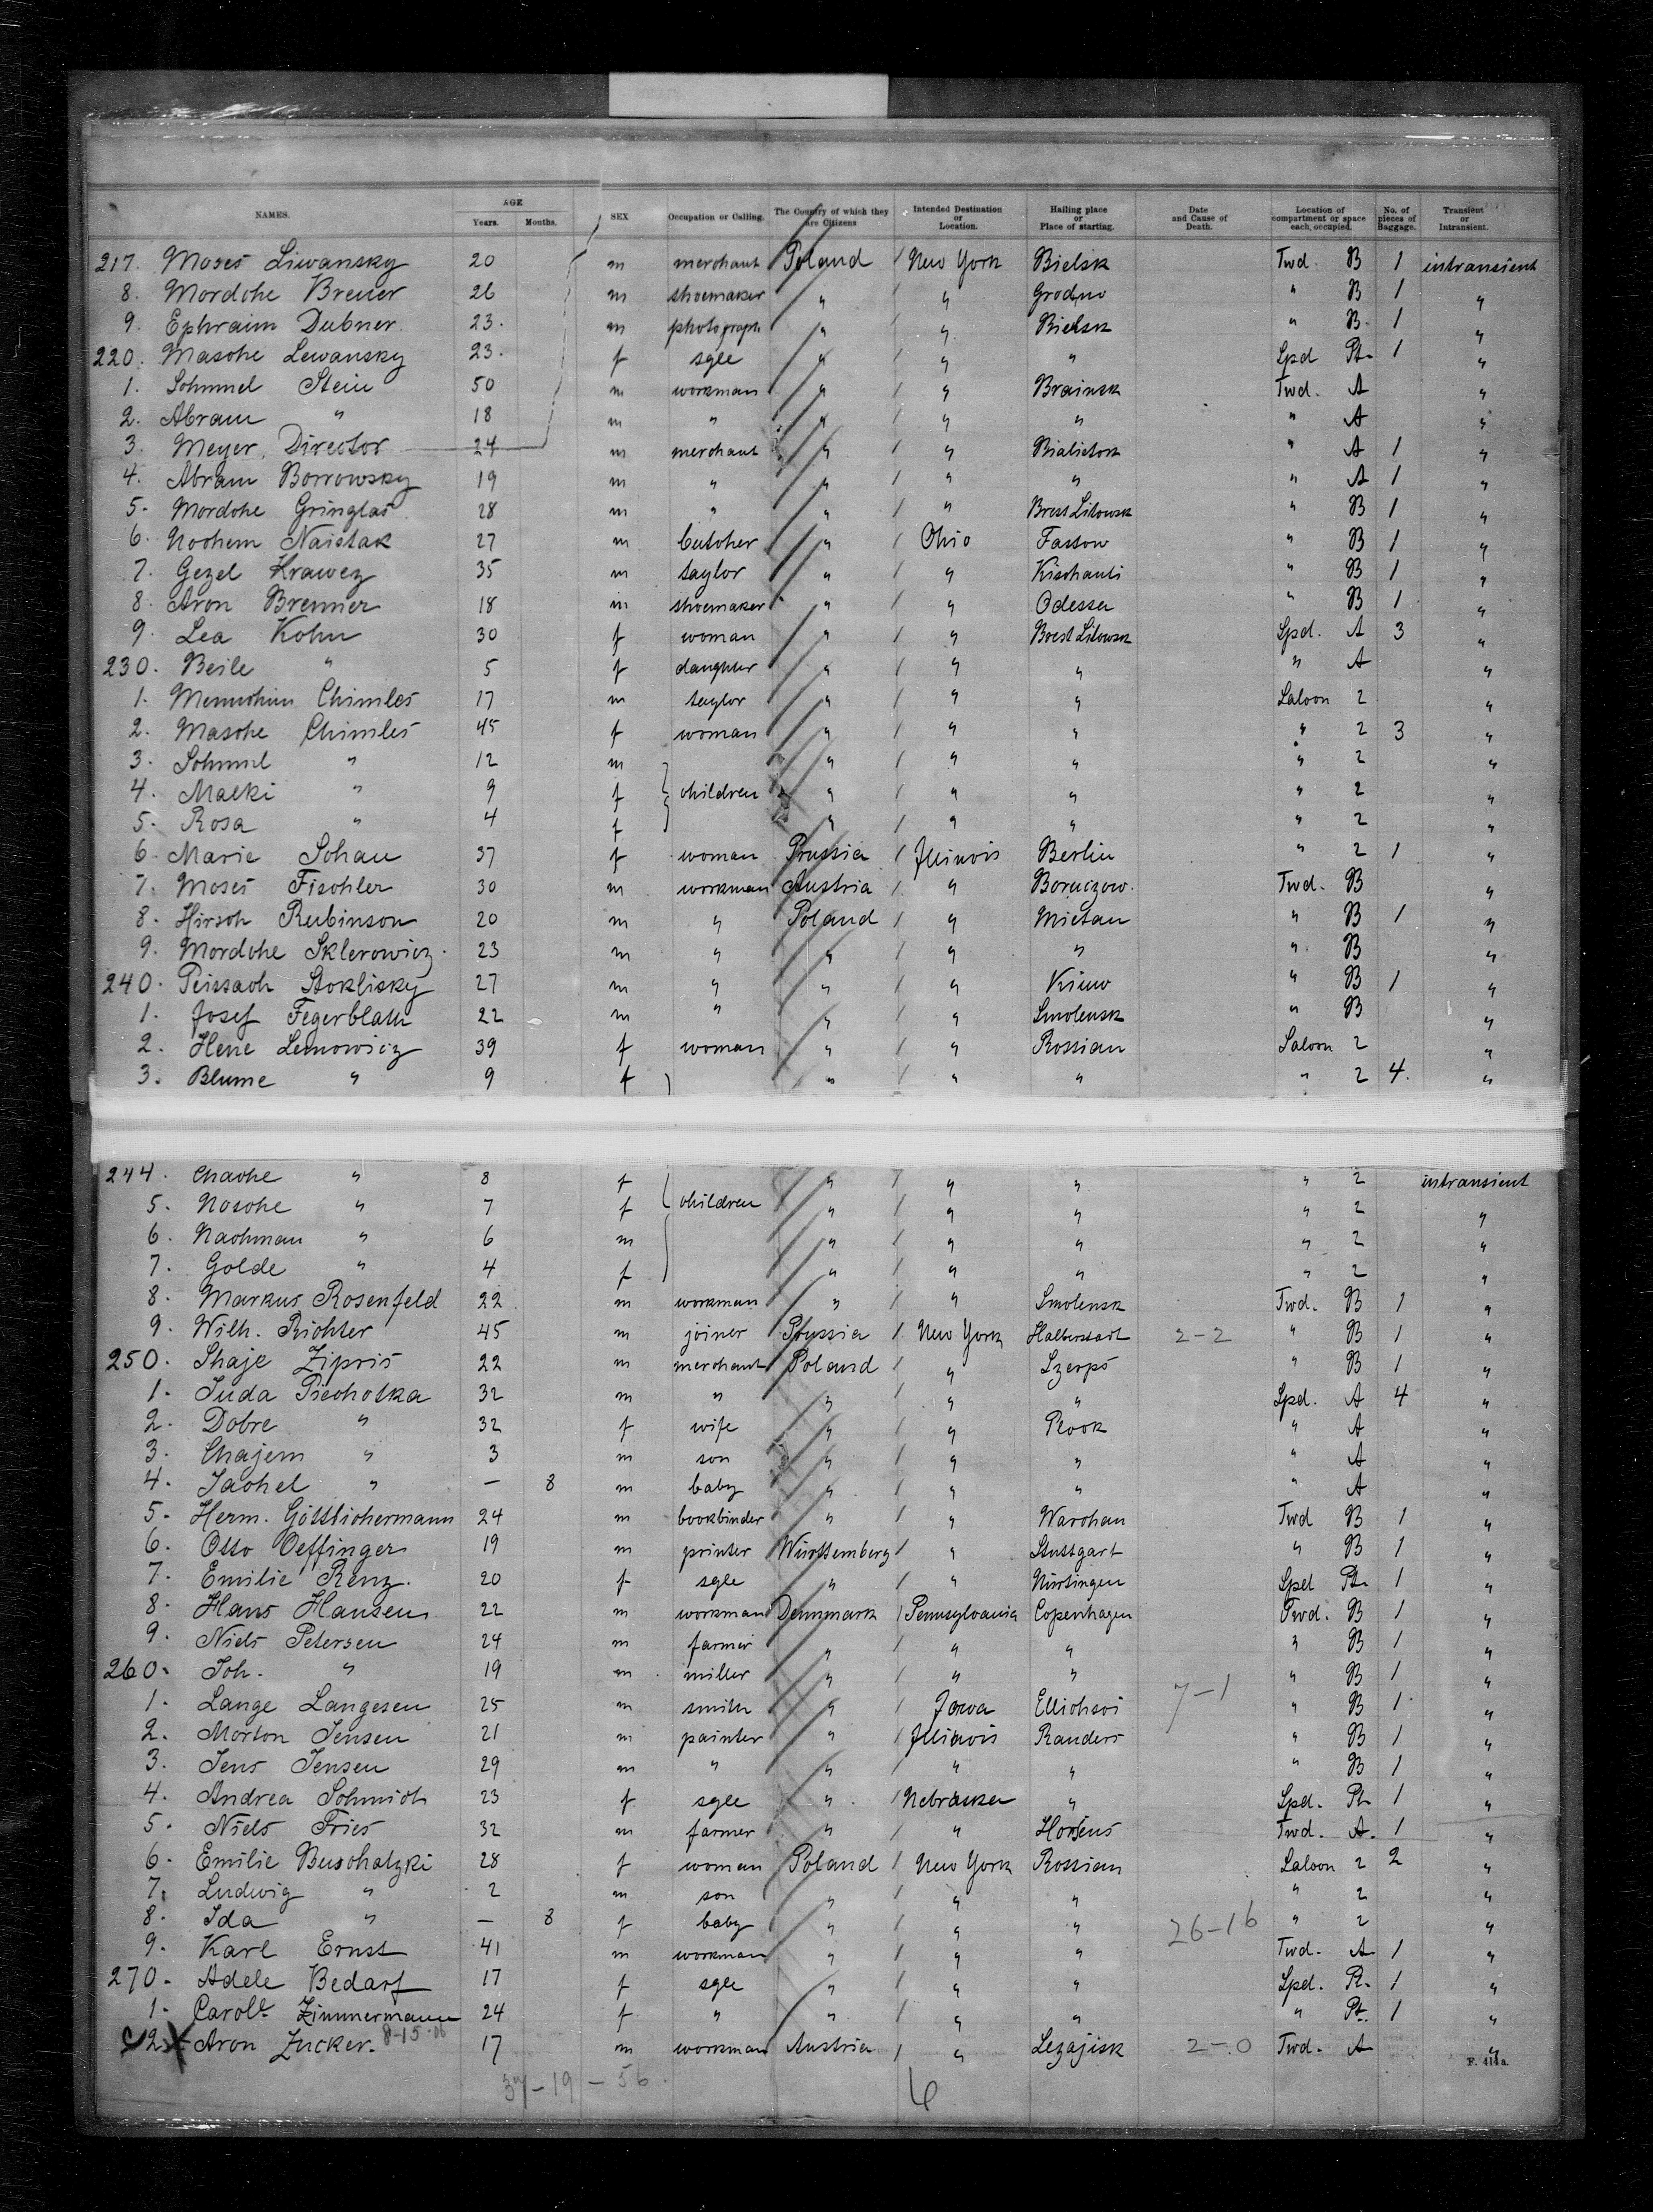 NAMES. AGE Years. Months. SEX Occupation or Calling. The Country of which they are Citizens Intended Destination or Location. Hailing place or Place of starting. Date and Cause of Death. Location of compartment or space each occupied. No. of pieces of Baggage. Transient or Intransient.
217. Moses Liwansky 20 m merchant Poland / New York Bielsk Twd. B 1 intransient
8. Mordche Breuer 26 m shoemaker " / " Grodno " B 1 "
9. Ephraim Dubner 23. m photograph " / " Bielsk " B 1 "
220. Masche Lewansky 23. f sgle " / " " Spd Pt. 1 "
1. Schmuel Stein 50 m workman " / " Brainsk Twd. A "
2. Abram " 18 m " " / " " " A "
3. Meyer Director 24 m merchant " / " Bialistok " A 1 "
4. Abram Borrowsky 19 m " " / " " " A 1 "
5. Mordche Gringlas 28 m " " / " Brest Litowsk " B 1 "
6. Nochem Naistak 27 m butcher " / Ohio Fassow " B 1 "
7. Gezel Krawez 35 m taylor " / " Kischanti " B 1 "
8. Aron Brenner 18 m shoemaker " / " Odessa " B 1 "
9. Lea Kohn 30 f woman " / " Brest Litowsk Spd. A 3 "
230. Beile " 5 f daughter " / " " " A "
1. Mennchim Chimles 17 m taylor " / " " Saloon 2 "
2. Masche Chimles 45 f woman " / " " " 2 3 "
3. Schmul " 12 m " / " " " 2 "
4. Malki " 9 f children " / " " " 2 "
5. Rosa " 4 f " / " " " 2 "
6. Marie Schau 37 f woman Prussia / Illinois Berlin " 2 1 "
7. Moses Fischler 30 m workman Austria / " Boruczow. Twd. B "
8. Hirsch Rubinson 20 m " Poland / " Mietau " B 1 "
9. Mordche Sklerowicz. 23 m " " / " " " B "
240. Peissach Stoklisky 27 m " " / " Kiew " B 1 "
1. Josef Fegerblath 22 m " " / " Smolensk " B "
2. Hene Lemowicz 39 f woman " / " Rossian Saloon 2 "
3. Blume " 9 f " / " " " 2 4. "
244. Chache " 8 f " / " " " 2 intransient
5. Nosche " 7 f children " / " " " 2 "
6. Nachman " 6 m " / " " " 2 "
7. Golde " 4 f " / " " " 2 "
8. Markus Rosenfeld 22 m workman " / " Smolensk Twd. B 1 "
9. Wilh. Richter 45 m joiner Prussia / New York Halberstadt 2-2 " B 1 "
250. Shaje Zipris 22 m merchant Poland / " Szerps " B 1 "
1. Juda Piechotka 32 m " " / " " Spd. A 4 "
2. Dobre " 32 f wife " / " Plock " A "
3. Chajem " 3 m son " / " " " A "
4. Jachel " — 8 m baby " / " " " A "
5. Herm. Göttlichermann 24 m bookbinder " / " Warchau Twd B 1 "
6. Otto Oeffinger 19 m printer Württemberg / " Stuttgart " B 1 "
7. Emilie Renz. 20 f sgle " / " Nürtingen Spd Pt. 1 "
8. Hans Hansen 22 m workman Dennmark / Pennsylvania Copenhagen Twd. B 1 "
9. Niels Petersen 24 m farmer " / " " " B 1 "
260. Joh. " 19 m miller " / " " " B 1 "
1. Lange Langesen 25 m smith " / Jowa Ellichsoi 7-1 " B 1 "
2. Morton Jensen 21 m painter " / Illinois Randers " B 1 "
3. Jens Jensen 29 m " " / " " " B 1 "
4. Andrea Schmidt 23 f sgle " / Nebraska " Spd. Pt. 1 "
5. Niels Fries 32 m farmer " / " Horsens Twd. A. 1 "
6. Emilie Buschatzki 28 f woman Poland / New York Rossian Saloon 2 2 "
7. Ludwig " 2 m son " / " " " 2 "
8. Ida " — 8 f baby " / " " 26-16 " 2 "
9. Karl Ernst 41 m workman " / " " Twd. A 1 "
270. Adele Bedarf 17 f sgle " / " " Spd. Pt. 1 "
1. Carole Zimmermann 24 f " " / " " " Pt. 1 "
2. X Aron Zucker. 8-15-06 17 m workman Austria / " Lezajisk 2-0 Twd. A "
F. 414a.
37-19-56. 6